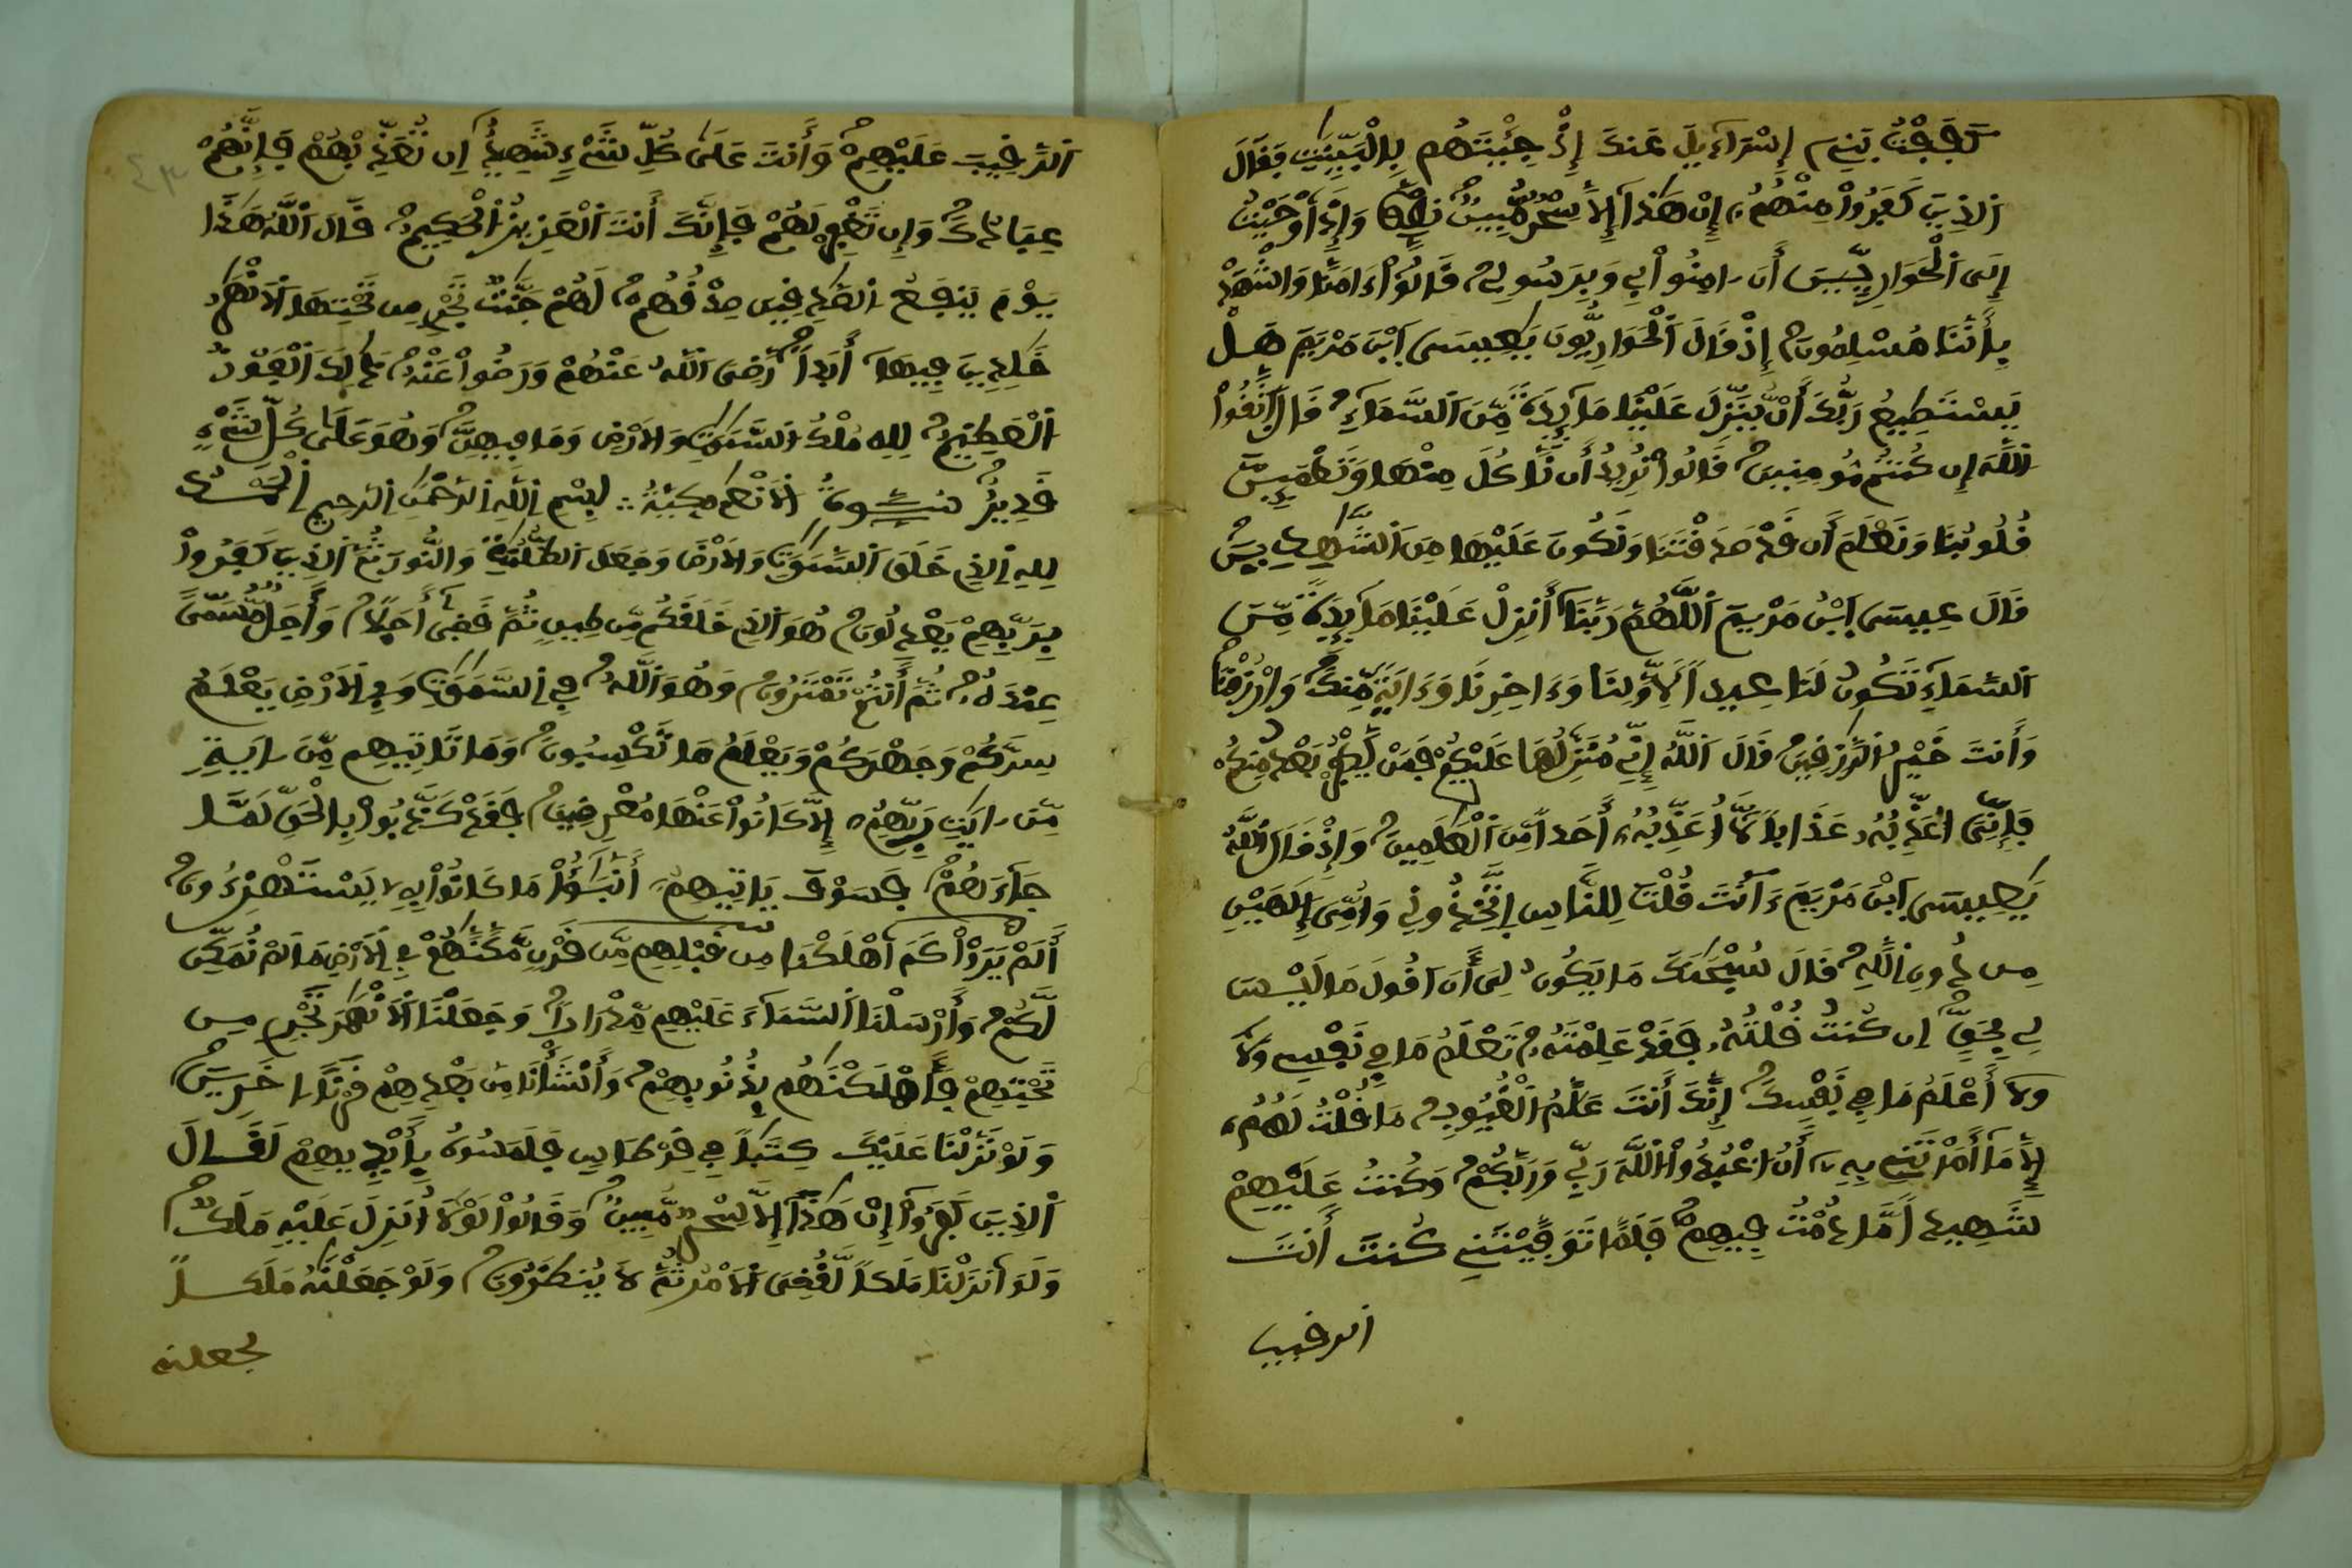 كَفَفْتُ بَنِي إِسْرَآءِيلَ عَنكَ إِذْ جِئْتَهُم بِالْبَيِّنَٰتِ فَقَالَ
اَلذِينَ كَفَرُواْ مِنْهُمُۥٓ إِنْ هَٰذَآ إِلَّا سِحْرٌ مُّبِينٌ وَإِذَ اَوْحَيْتُ
إِلَى اَلْحَوَارِيِّينَ أَنَ اٰمِنُواْ بِي وَبِرَسُولِي قَالُوٓاْ ءَامَنَّا وَاشْهَدْ
بِأَنَّنَا مُسْلِمُونَ إِذْ قَالَ اَلْحَوَارِيُّونَ يَٰعِيسَى اَبْنَ مَرْيَمَ هَلْ
يَسْتَطِيعُ رَبُّكَ أَنْ يُّنَزِّلَ عَلَيْنَا مَآئِدَةً مِّنَ اَلسَّمَآءِ قَالَ اَتَّقُواْ
اُللَّهَ إِن كُنتُم مُّومِنِينَ قَالُواْ نُرِيدُ أَن نَّاكُلَ مِنْهَا وَتَطْمَئِنَّ
قُلُوبُنَا وَنَعْلَمَ أَن قَدْ صَدَقْتَنَا وَنَكُونَ عَلَيْهَا مِنَ اَلشَّٰهِدِينَ
قَالَ عِيسَى اَبْنُ مَرْيَمَ اَللَّهُمَّ رَبَّنَآ أَنزِلْ عَلَيْنَا مَآئِدَةً مِّنَ
اَلسَّمَآءِ تَكُونُ لَنَا عِيداً لِّأَوَّلِنَا وَءَاخِرِنَا وَءَايَةً مِّنكَ وَارْزُقْنَا
وَأَنتَ خَيْرُ اُلرَّٰزِقِينَ قَالَ اَللَّهُ إِنِّي مُنَزِّلُهَا عَلَيْكُمْ فَمَنْ يَّكْفُرْ بَعْدُ مِنكُمْ
فَإِنِّيَ أُعَذِّبُهُۥ عَذَاباً لَّآ أُعَذِّبُهُۥٓ أَحَداً مِّنَ اَلْعَٰلَمِينَ وَإِذْ قَالَ اَللَّهُ
يَٰعِيسَى اَبْنَ مَرْيَمَ ءَآنتَ قُلْتَ لِلنَّاسِ اِتَّخِذُونِي وَأُمِّيَ إِلَٰهَيْنِ
مِن دُونِ اِللَّهِ قَالَ سُبْحَٰنَكَ مَا يَكُونُ لِيَ أَنَ اَقُولَ مَا لَيْسَ
لِي بِحَقٍّ اِن كُنتُ قُلْتُهُۥ فَقَدْ عَلِمْتَهُۥ تَعْلَمُ مَا فِي نَفْسِي وَلَآ
وَلَآ أَعْلَمُ مَا فِي نَفْسِكَ إِنَّكَ أَنتَ عَلَّٰمُ اُلْغُيُوبِ مَا قُلْتُ لَهُمُۥٓ
إِلَّا مَآ أَمَرْتَنِي بِهِۦٓ أَنُ اُعْبُدُواْ اُللَّهَ رَبِّي وَرَبَّكُمْ وَكُنتُ عَلَيْهِمْ
شَهِيداً مَّا دُمْتُ فِيهِمْ فَلَمَّا تَوَفَّيْتَنِي كُنتَ أَنتَ
الرقيب
اَلرَّقِيبَ عَلَيْهِمْ وَأَنتَ عَلَىٰ كُلِّ شَيْءٍ شَهِيدٌ اِن تُعَذِّبْهُمْ فَإِنَّهُمْ
عِبَادُكَ وَإِن تَغْفِرْ لَهُمْ فَإِنَّكَ أَنتَ اَلْعَزِيزُ اُلْحَكِيمُ قَالَ اَللَّهُ هَٰذَا
يَوْمَ يَنفَعُ اُلصَّٰدِقِينَ صِدْقُهُمْ لَهُمْ جَنَّٰتٌ تَجْرِي مِن تَحْتِهَا اَلَانْهَٰرُ
خَٰلِدِينَ فِيهَآ أَبَداً رَّضِيَ اَللَّهُ عَنْهُمْ وَرَضُواْ عَنْهُ ذَٰلِكَ اَلْفَوْزُ
اُلْعَظِيمُ لِلهِ مُلْكُ اُلسَّمَٰوَٰتِ وَالَارْضِ وَمَا فِيهِنَّ وَهُوَ عَلَىٰ كُلِّ شَيْءٍ
قَدِيرٌ سورة الأنعام مكية بِسْمِ اِللَّهِ اِلرَّحْمَٰنِ اِلرَّحِيمِ اِلْحَمْدُ
لِلهِ اِلذِي خَلَقَ اَلسَّمَٰوَٰتِ وَالَارْضَ وَجَعَلَ اَلظُّلُمَٰتِ وَالنُّورَ ثُمَّ اَلذِينَ كَفَرُواْ
بِرَبِّهِمْ يَعْدِلُونَ هُوَ اَلذِي خَلَقَكُم مِّن طِينٍ ثُمَّ قَضَىٰٓ أَجَلاً وَأَجَلٌ مُّسَمّىً
عِندَهُۥ ثُمَّ أَنتُمْ تَمْتَرُونَ وَهُوَ اَللَّهُ فِي اِلسَّمَٰوَٰتِ وَفِي اِلَارْضِ يَعْلَمُ
سِرَّكُمْ وَجَهْرَكُمْ وَيَعْلَمُ مَا تَكْسِبُونَ وَمَا تَاتِيهِم مِّنَ اٰيَةٍ
مِّنَ اٰيَٰتِ رَبِّهِمُۥٓ إِلَّا كَانُواْ عَنْهَا مُعْرِضِينَ فَقَدْ كَذَّبُواْ بِالْحَقِّ لَمَّا
جَآءَهُمْ فَسَوْفَ يَاتِيهِمُۥٓ أَنۢبَٰٓؤُاْ مَا كَانُواْ بِهِۦ يَسْتَهْزِءُونَ
أَلَمْ يَرَوْاْ كَمَ اَهْلَكْنَا مِن قَبْلِهِم مِّن قَرْنٍ مَّكَّنَّٰهُمْ فِي اِلَارْضِ مَا لَمْ نُمَكِّن
لَّكُمْ وَأَرْسَلْنَا اَلسَّمَآءَ عَلَيْهِم مِّدْرَاراً وَجَعَلْنَا اَلَانْهَٰرَ تَجْرِي مِن
تَحْتِهِمْ فَأَهْلَكْنَٰهُم بِذُنُوبِهِمْ وَأَنشَأْنَا مِنۢ بَعْدِهِمْ قَرْناً اٰخَرِينَ
وَلَوْ نَزَّلْنَا عَلَيْكَ كِتَٰباً فِي قِرْطَاسٍ فَلَمَسُوهُ بِأَيْدِيهِمْ لَقَالَ
اَلذِينَ كَفَرُوٓاْ إِنْ هَٰذَآ إِلَّا سِحْرٌ مُّبِينٌ وَقَالُواْ لَوْلَآ أُنزِلَ عَلَيْهِ مَلَكٌ
وَلَوَ اَنزَلْنَا مَلَكاً لَّقُضِيَ اَلَامْرُ ثُمَّ لَا يُنظَرُونَ وَلَوْ جَعَلْنَٰهُ مَلَكاً
لجعلنه